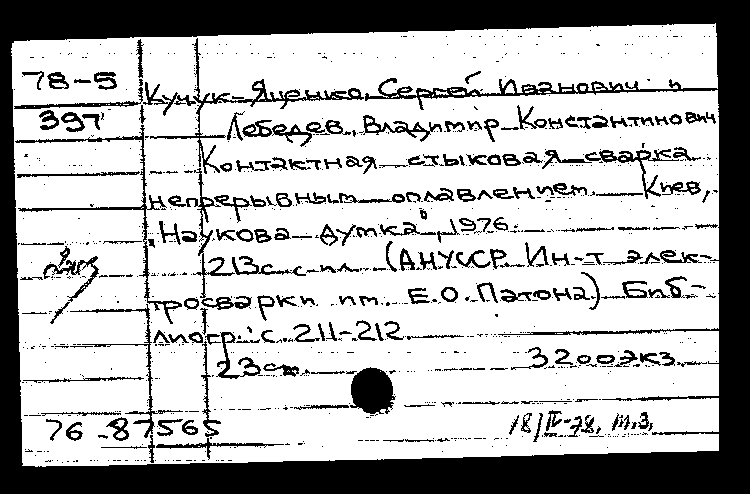 78-5
397
Кучук-Яценко, Сергей Иванович и
Лебедев, Владимир Константинович
Контактная стыковая сварка
непрерывным оплавлением. Киев,
"Наукова думка", 1976.
213с. с ил. (АНУССР. Ин-т элек-
тросварки им. Е.О.Патона) Биб-
лиогр.: с. 211-212.
23см. 3200экз.
76-87565
18/IV-78, т.3,